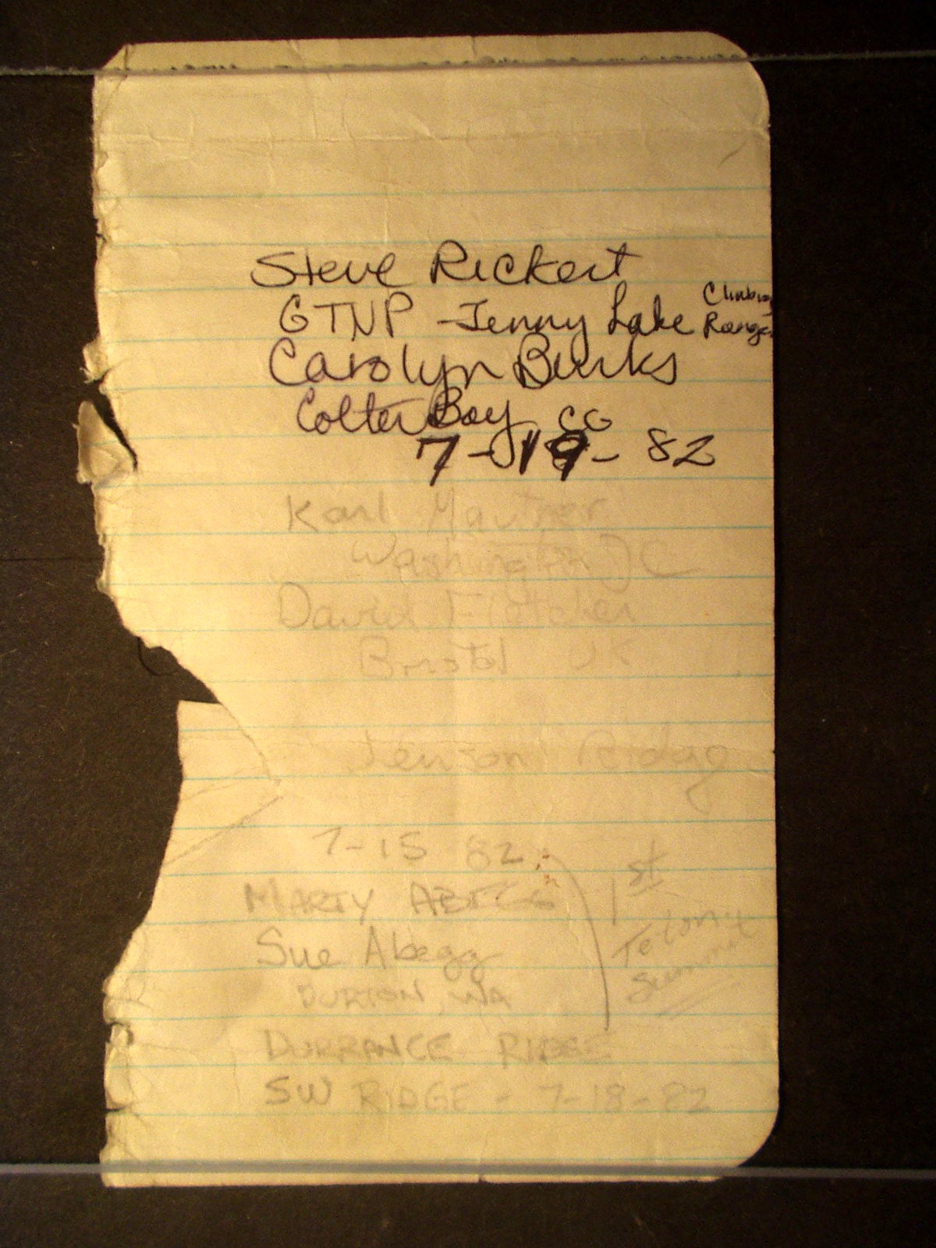 Steve Rickert
GTNP - Jenny Lake Climbing Ranger
Carolyn Burks
Colter Bay CG
7-19-82
Karl Mautner
Washington DC
David Fletcher
Bristol UK
7-15 82
MARTY ABEGG
Sue Abegg
BURTON, WA
1st
Teton
Summit
DURRANCE RIDGE
SW RIDGE - 7-18-82